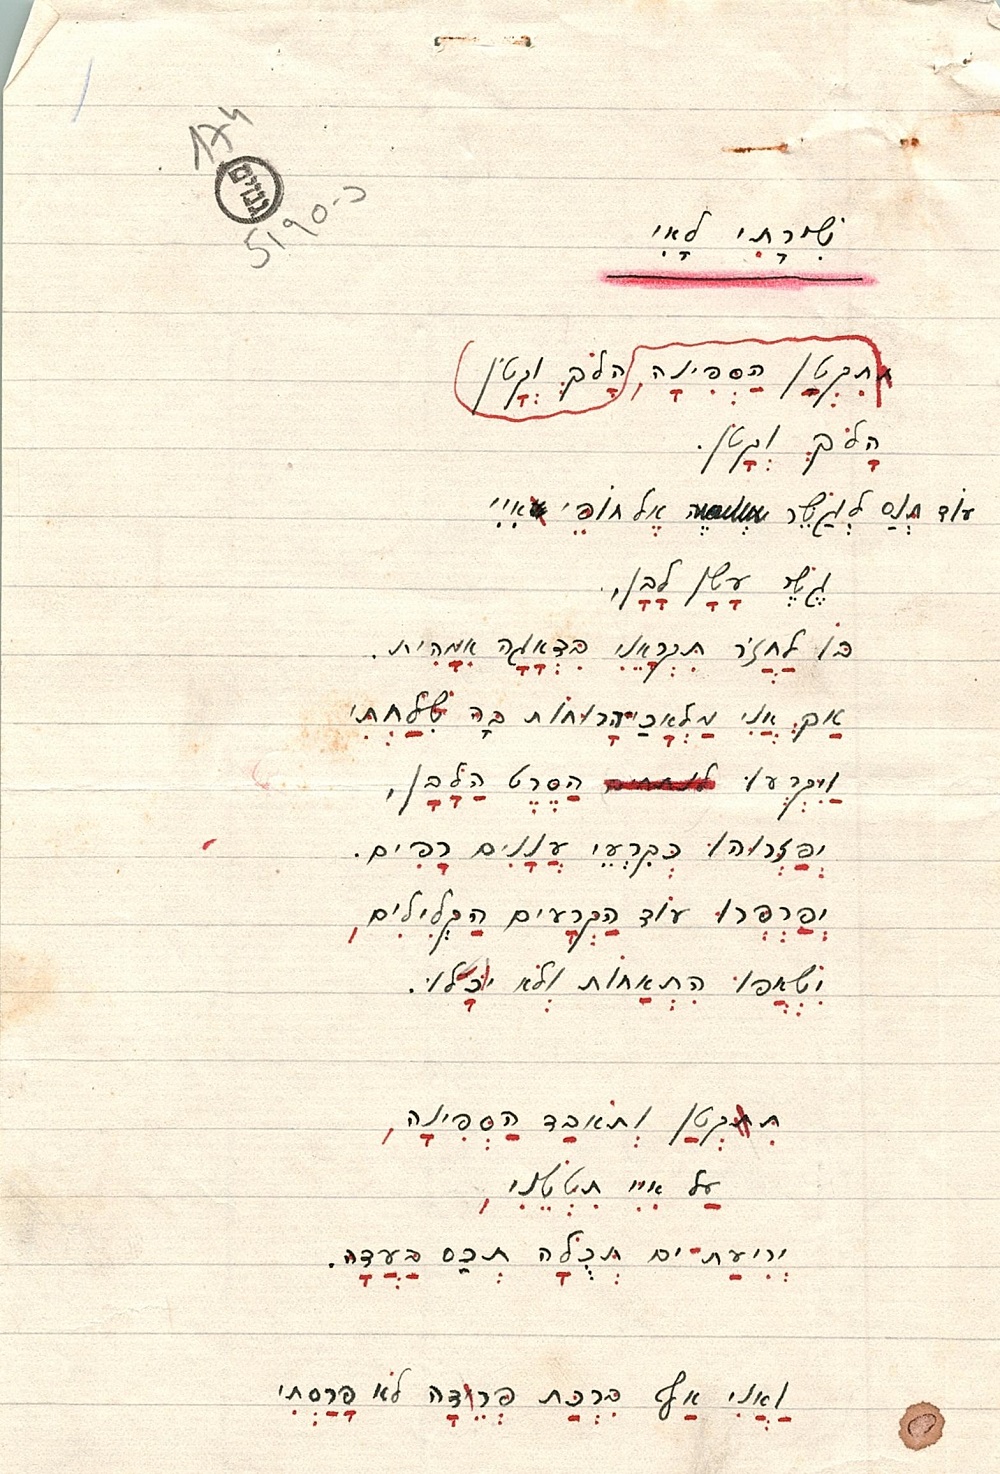 174
גנזים
5190-כ
שִׁירָתִי לָאִי
תִּקְטַן הַסְּפִינָה, הָלֹךְ וְקָטֹן
הָלֹךְ וְקָטֹן.
עוֹד תְּנַס לְגַשֵּׁר אֶל חוֹפֵי אִיִּי
גֶּשֶׁר עָשָׁן לָבָן,
בּוֹ לַחֲזֹר תִּקְרָאֵנִי בִּדְאָגָה אִמָּהִית.
אַךְ אֲנִי מַלְאֲכֵי־הָרוּחוֹת בָּהּ שִׁלַּחְתִּי
וַיִּקְרְעוּ הַסֶּרֶט הַלָּבָן,
יְפַזְּרוּהוּ כְּקִרְעֵי עֲנָנִים רָפִים.
יְפַרְפְּרוּ עוֹד הַקְּרָעִים הַקְּלִילִים,
יִשְׁאֲפוּ הִתְאַחוֹת וְלֹא יָכֹלוּ.
תִּקְטַן וְתֹאבַד הַסְּפִינָה,
עַל אִיִּי תִּטְּשֵׁנִי,
יְרִיעַת־יָם תְּכֻלָּה תְּכַס בַּעֲדָהּ.
וַאֲנִי אַף בִּרְכַּת פְּרֵדָה לֹא פָּרַסְתִּי